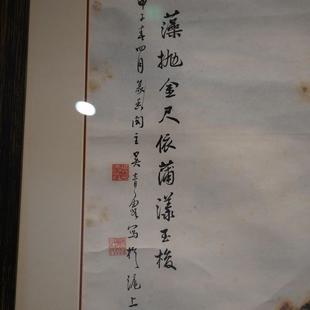 藻抛金尺依蒲漾玉梭
甲子春四月篆香閣主吴青霞寫於滬上